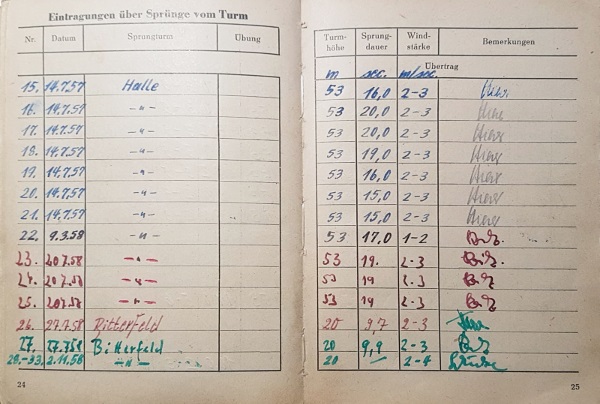 Eintragungen über Sprünge vom Turm
Nr. Datum Sprungturm Übung
15. 14.7.57 Halle
16. 14.7.57 -"-
17. 14.7.57 -"-
18. 14.7.57 -"-
19. 14.7.57 -"-
20. 14.7.57 -"-
21. 14.7.57 -"-
22. 9.3.58 -"-
23. 20.7.58 -"-
24. 20.7.58 -"-
25. 20.7.58 -"-
26. 27.7.58 Bitterfeld
27. 27.7.58 Bitterfeld
28.-33. 2.11.58 -"-
24
Turmhöhe Sprungdauer Windstärke Bemerkungen
Übertrag
m sec. m/sec.
53 16,0 2-3
53 20,0 2-3
53 20,0 2-3
53 19,0 2-3
53 16,0 2-3
53 15,0 2-3
53 15,0 2-3
53 17,0 1-2
53 19. 2-3
53 19 2-3
53 19 2-3
20 9,7 2-3
20 9,9 2-3
20 2-4
25